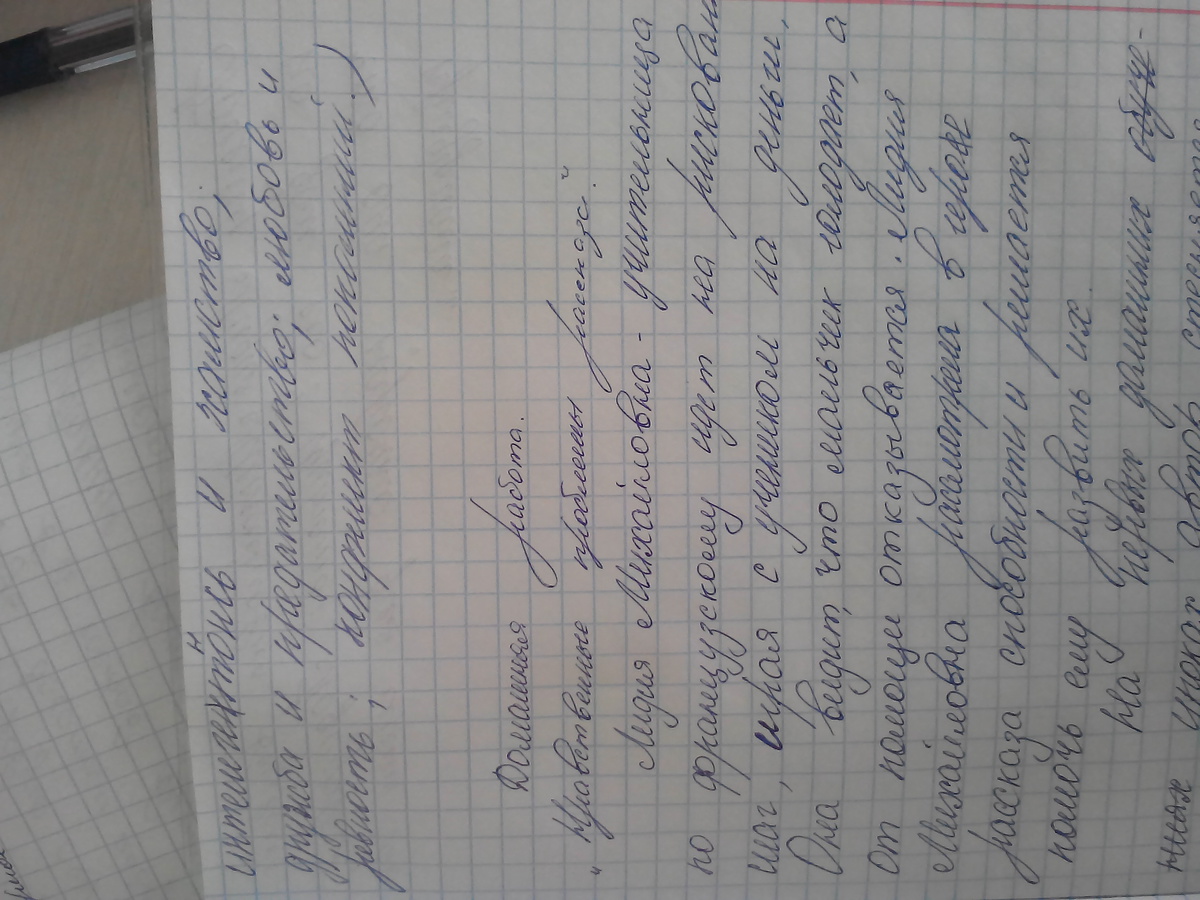 интеллигентность и хамство;
дружба и предательство; любовь и
ревность; конфликт поколений.)
Домашняя работа.
"Нравственные проблемы рассказа."
Лидия Михайловна - учительница
по французскому идет на рискован
шаг, играя с учеником на деньги.
Она видит, что мальчик голодает, а
от помощи отказывается. Лидия
Михайловна рассмотрела в герое
рассказа способности и решается
помочь ему развить их.
На первых домашних
уроках автор стесняется